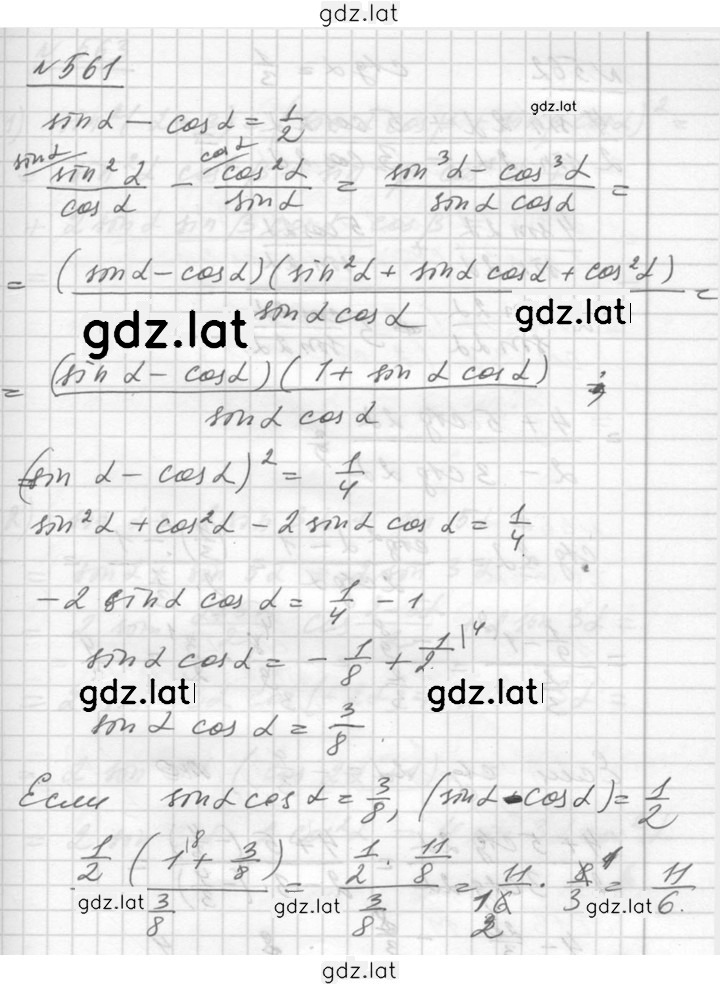 gdz.lat
№561
gdz.lat
sin α − cos α = 1/2
sin α cos α
sin²α/cos α − cos²α/sin α = (sin³α − cos³α)/(sin α cos α) =
= (sin α − cos α)(sin²α + sin α cos α + cos²α)/(sin α cos α) =
gdz.lat gdz.lat
= (sin α − cos α)(1 + sin α cos α)/(sin α cos α) ;
(sin α − cos α)² = 1/4
sin²α + cos²α − 2 sin α cos α = 1/4
−2 sin α cos α = 1/4 − 1
sin α cos α = −1/8 + 1/2 |4
gdz.lat gdz.lat
sin α cos α = 3/8
Если sin α cos α = 3/8, (sin α − cos α) = 1/2
1/2 (1|8 + 3/8)/(3/8) = (1/2 · 11/8)/(3/8) = 11/16 · 8/3 = 11/6.
2 1
gdz.lat gdz.lat gdz.lat
gdz.lat